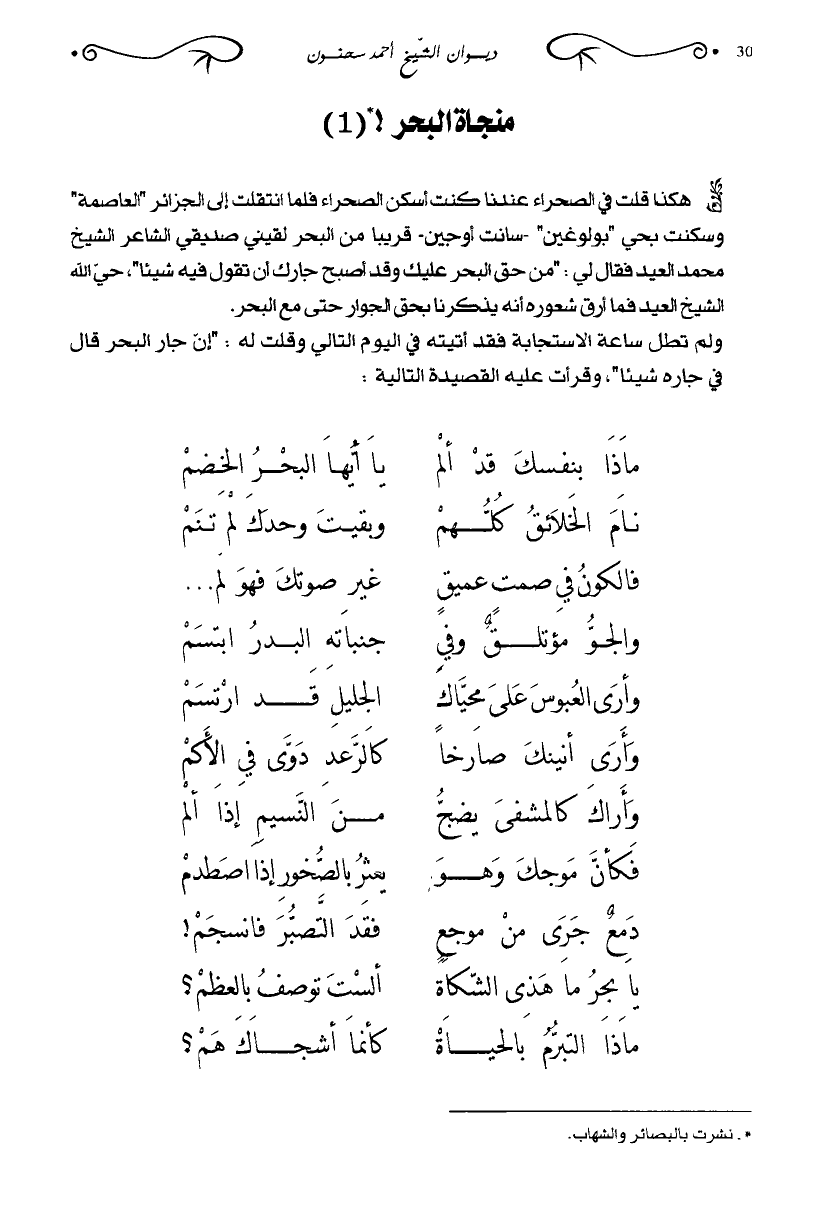 30 ديـوان الشّيخ أحمد سحنـون
منجاة البحر !*(1)
هكذا قلت في الصحراء عندنا كنت أسكن الصحراء فلما انتقلت إلى الجزائر "العاصمة"
وسكنت بحي "بولوغين" -سانت أوجين- قريبا من البحر لقيني صديقي الشاعر الشيخ
محمد العيد فقال لي : "من حق البحر عليك وقد أصبح جارك أن تقول فيه شيئا"، حيّ الله
الشيخ العيد فما أرق شعوره أنه يذكرنا بحق الجوار حتى مع البحر.
ولم تطل ساعة الاستجابة فقد أتيته في اليوم التالي وقلت له : "إنّ جار البحر قال
في جاره شيئا"، وقرأت عليه القصيدة التالية :
مَاذَا بنفسكَ قدْ ألمْ يا أيُّها البحْـرُ الخِضمْ
نامَ الخَلائقُ كُلُّـــهمْ وبقيـتَ وحدكَ لمْ تـنَمْ
فالكونُ في صمت عميقٍ غير صوتكَ فهوَ لم...
والجـوُّ مؤتلــقٌ وفي جنباته البـدرُ ابتْسَمْ
وأرَى العُبوسَ عَلىَ محيَّاكَ الجليلِ قَـــد ارْتسَمْ
وَأَرَى أنينكَ صارخاً كالرَّعدِ دَوَّى في الأَكَمْ
وَأَراكَ كالمشفىَ يضجُّ مــنَ النَّسيمِ إذا ألمْ
فكأنَّ مَوجكَ وَهــوَ يعثرُ بالصُّخورِ إذا اصَطدمْ
دَمعٌ جَرَى منْ موجعٍ فقدَ التَّصبُّرَ فانسجَمْ!
يا بحرُ ما هَذي الشّكاة ألستَ توصفُ بالعظمْ؟
مَاذَا التبرّمُ بالحيــاةْ كأنما أشجــاكَ هَمْ؟
*. نشرت بالبصائر والشهاب.